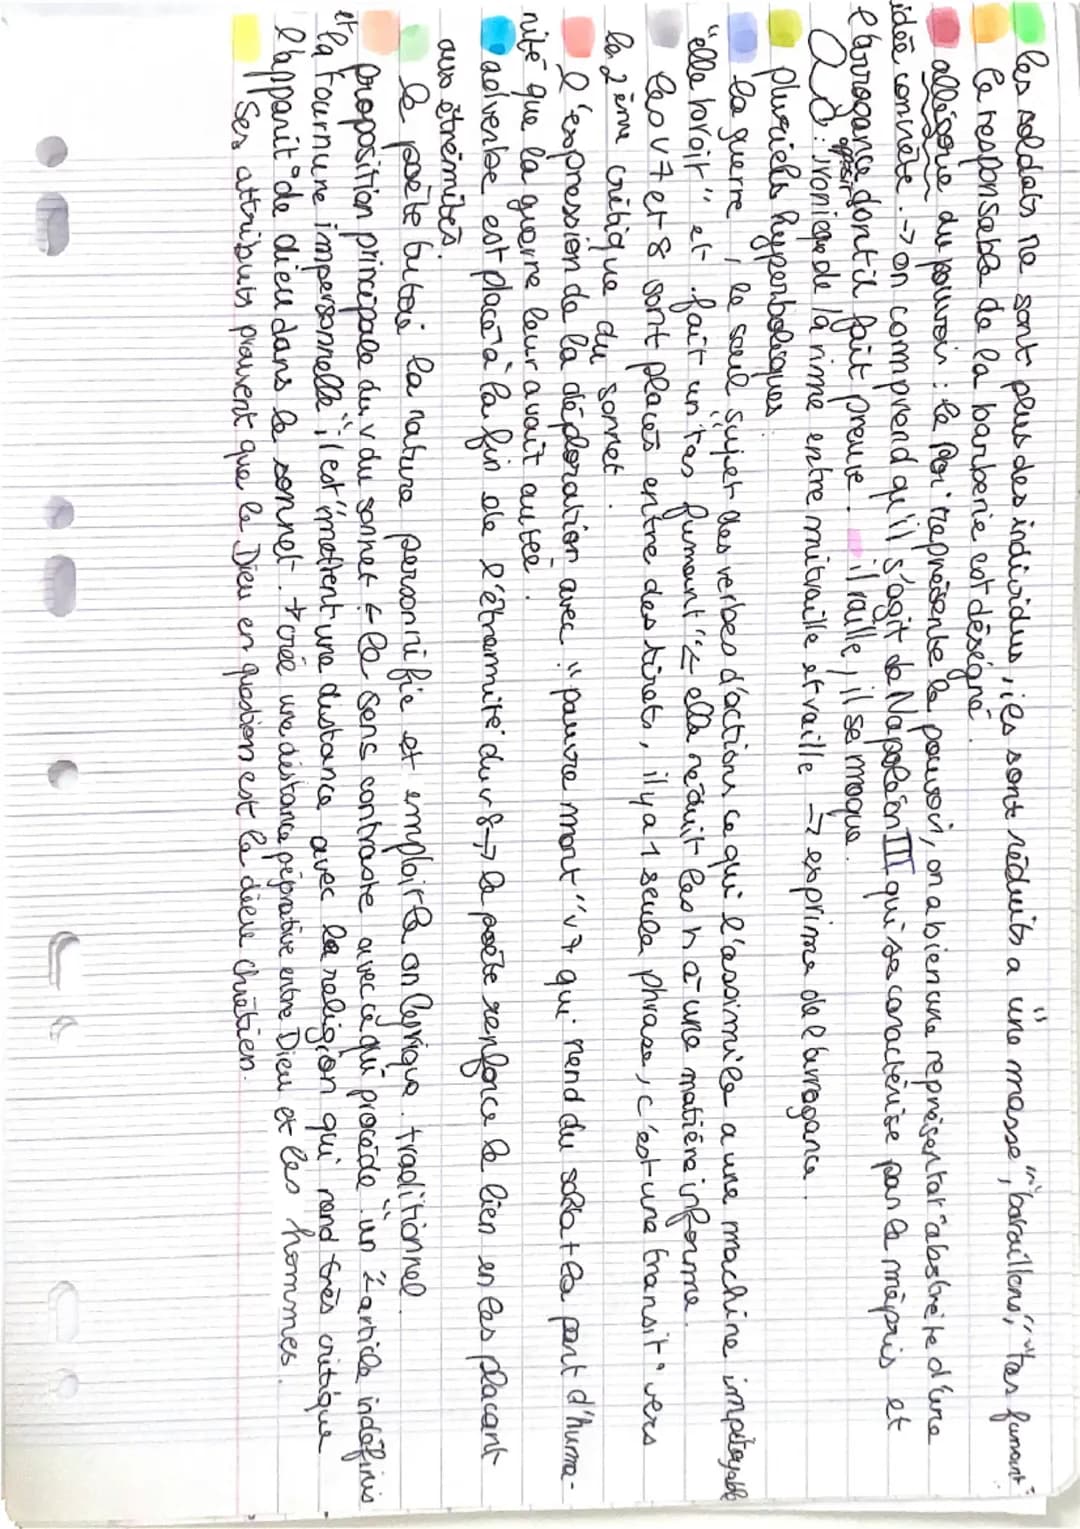 les soldats ne sont plus des individus, ils sont réduits a une masse, "bataillons", "tas fumant"
le responsable de la barbarie est désigné.
allégorie du pouvoir : le Roi représente le pouvoir, on a bien une représentat° abstraite d'une
idée concrète. -> on comprend qu'il s'agit de Napoléon III qui se caractérise par le mépris et
l'arrogance dont il fait preuve. il raille, il se moque.
ironie de la rime entre mitraille et raille -> exprime de l'arrogance.
pluriels hyperboliques
la guerre, le seul sujet des verbes d'actions ce qui l'assimile a une machine impitoyable
"elle broie" et "fait un tas fumant" < elle réduit les h à une matière informe.
les v7 et 8 sont placés entre des tirets, il y a 1 seule phrase, c'est une transit° vers
la 2ème critique du sonnet.
l'expression de la déploration avec "pauvre mort" v7 qui rend du soldat la part d'huma-
nité que la guerre leur avait autée.
adverbe est placé à la fin de l'étrémité du v8 -> le poète renforce le lien en les plaçant
aux étrémités.
le poète tutoie la nature personnifie et emploir le on lyrique traditionnel.
proposition principale du v du sonnet < le sens contraste avec ce qui précède "un" = article indéfinis
et la tournure impersonnelle, "il est" mettent une distance avec la religion qui rend très critique
l'apparit° de dieu dans le sonnet. + crée une distance péprative entre Dieu et les hommes.
Ses attributs prouvent que le Dieu en question est le dieu chrétien.